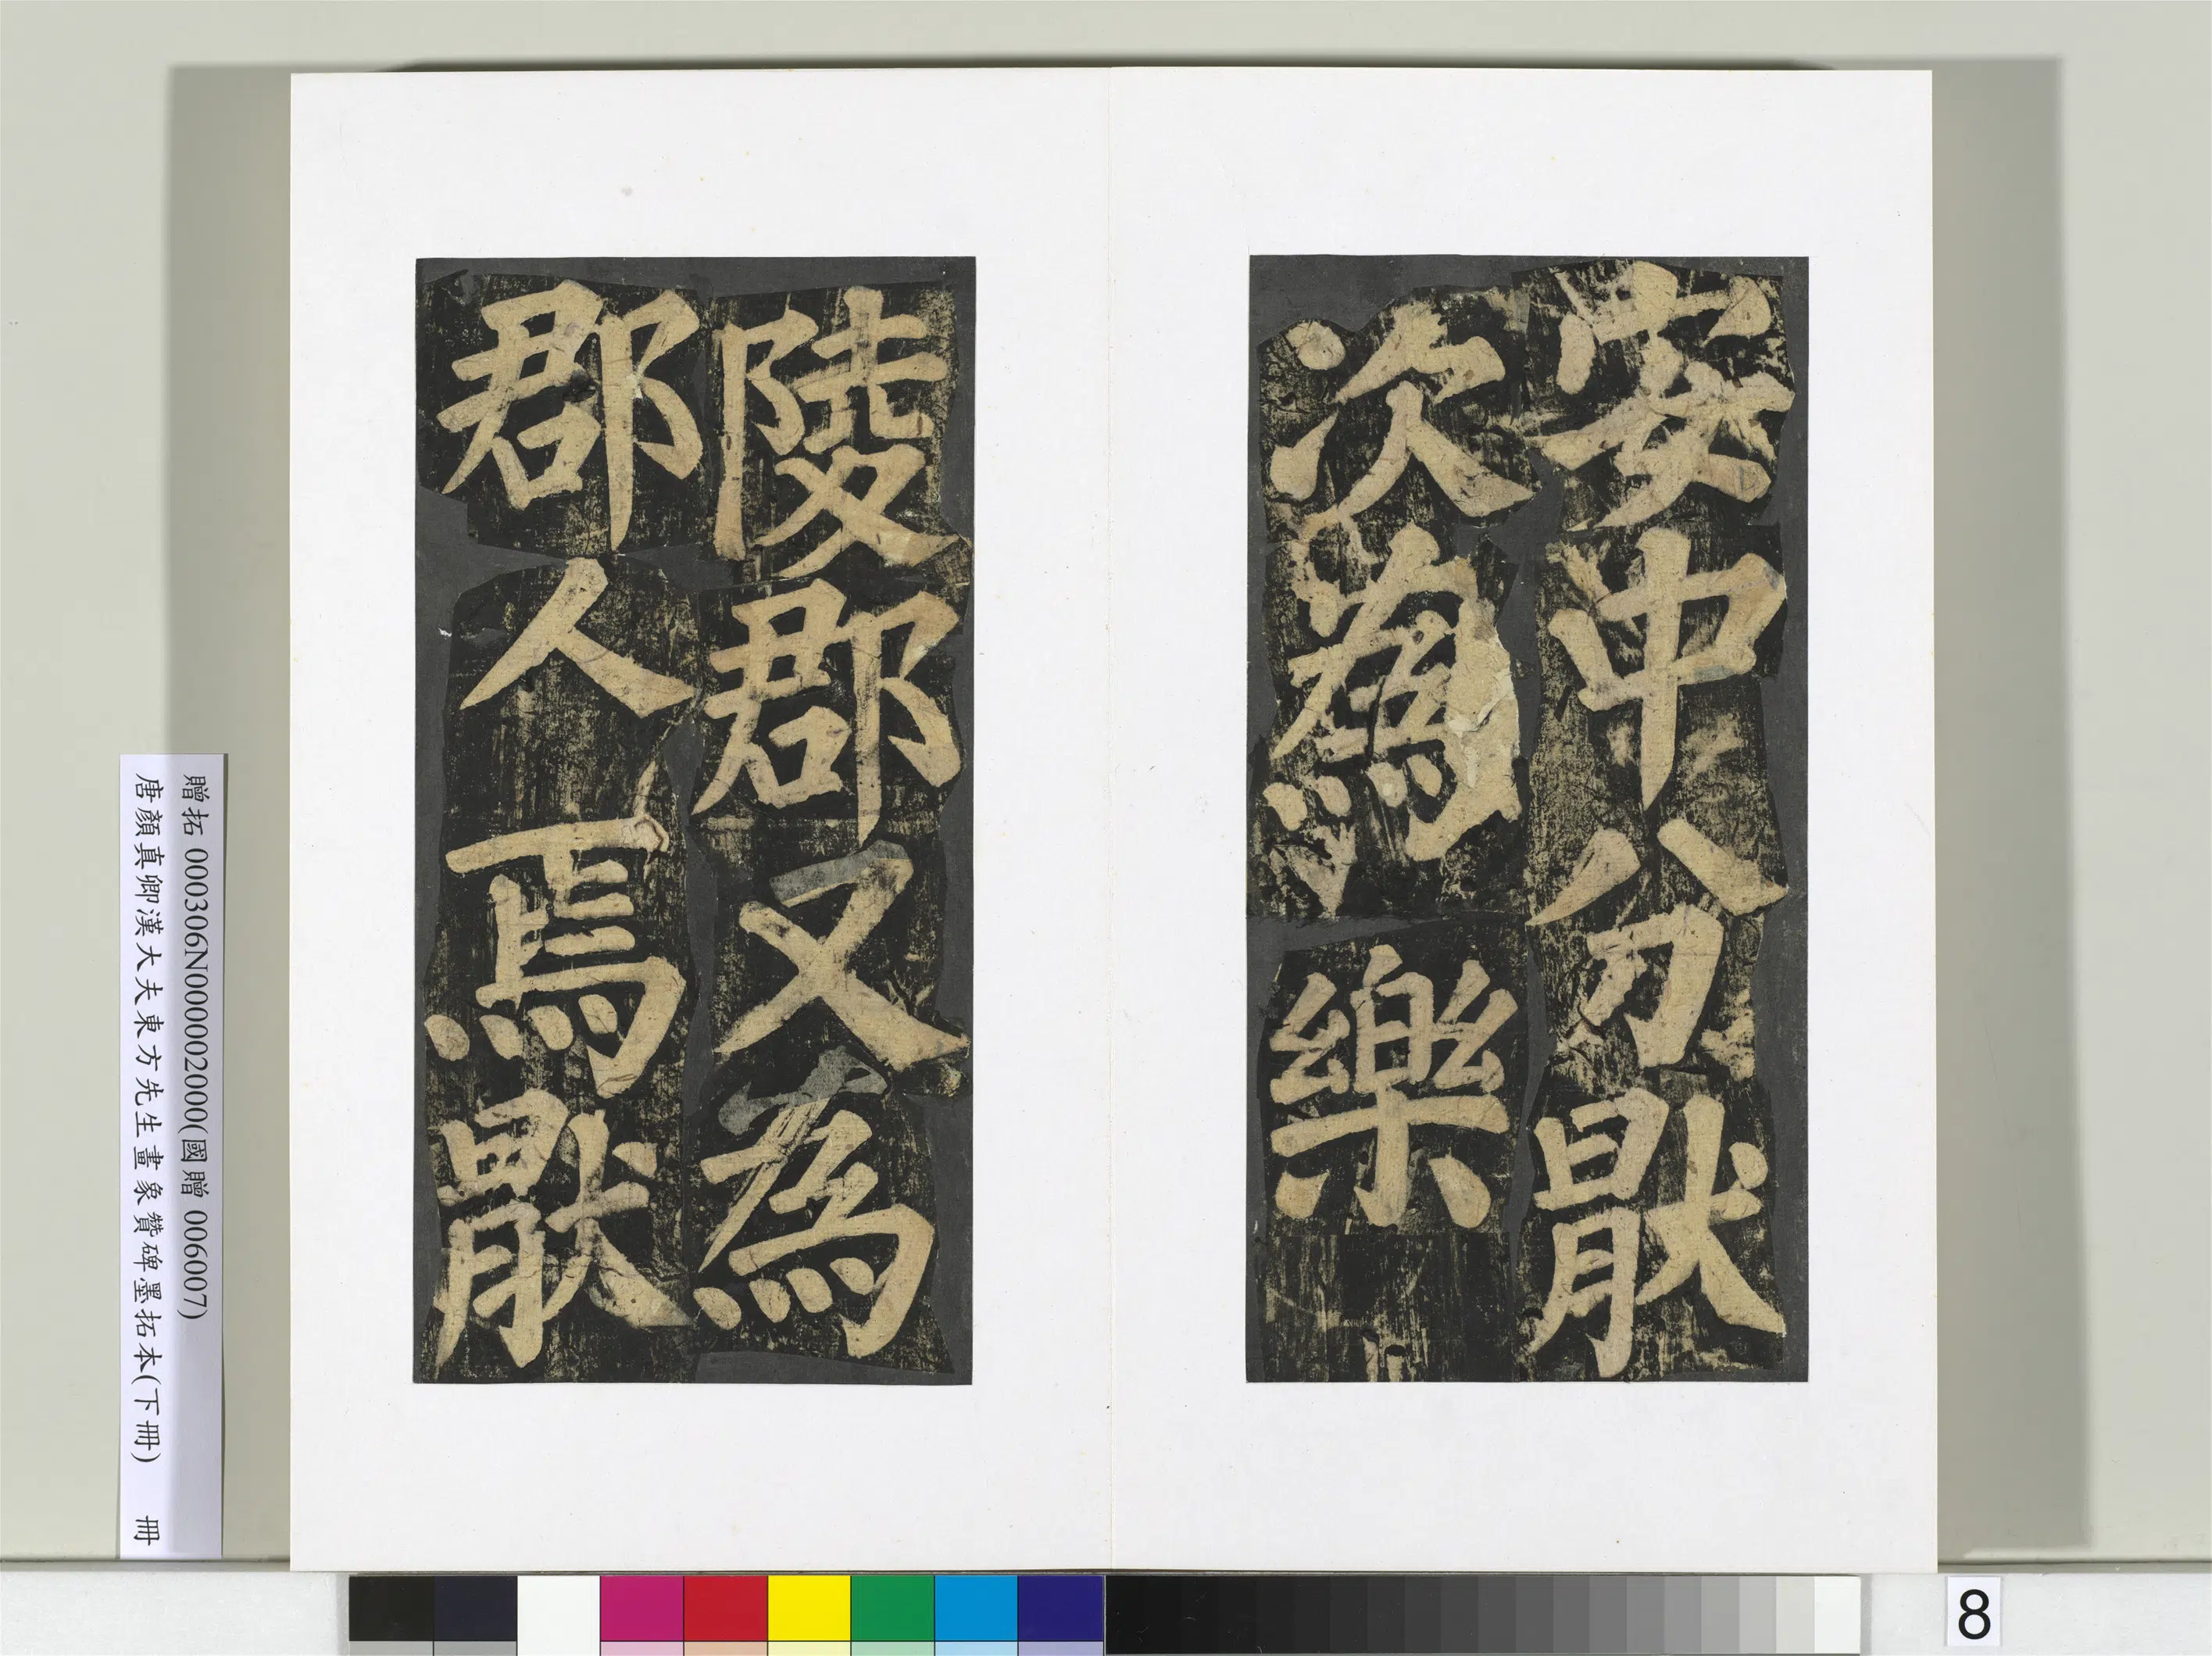 安中分厭
次為樂
陵郡又為
郡人焉厭
贈拓 000306N000002000(國贈 006007)
唐顏真卿漢大夫東方先生畫象贊碑墨拓本(下冊) 冊
8